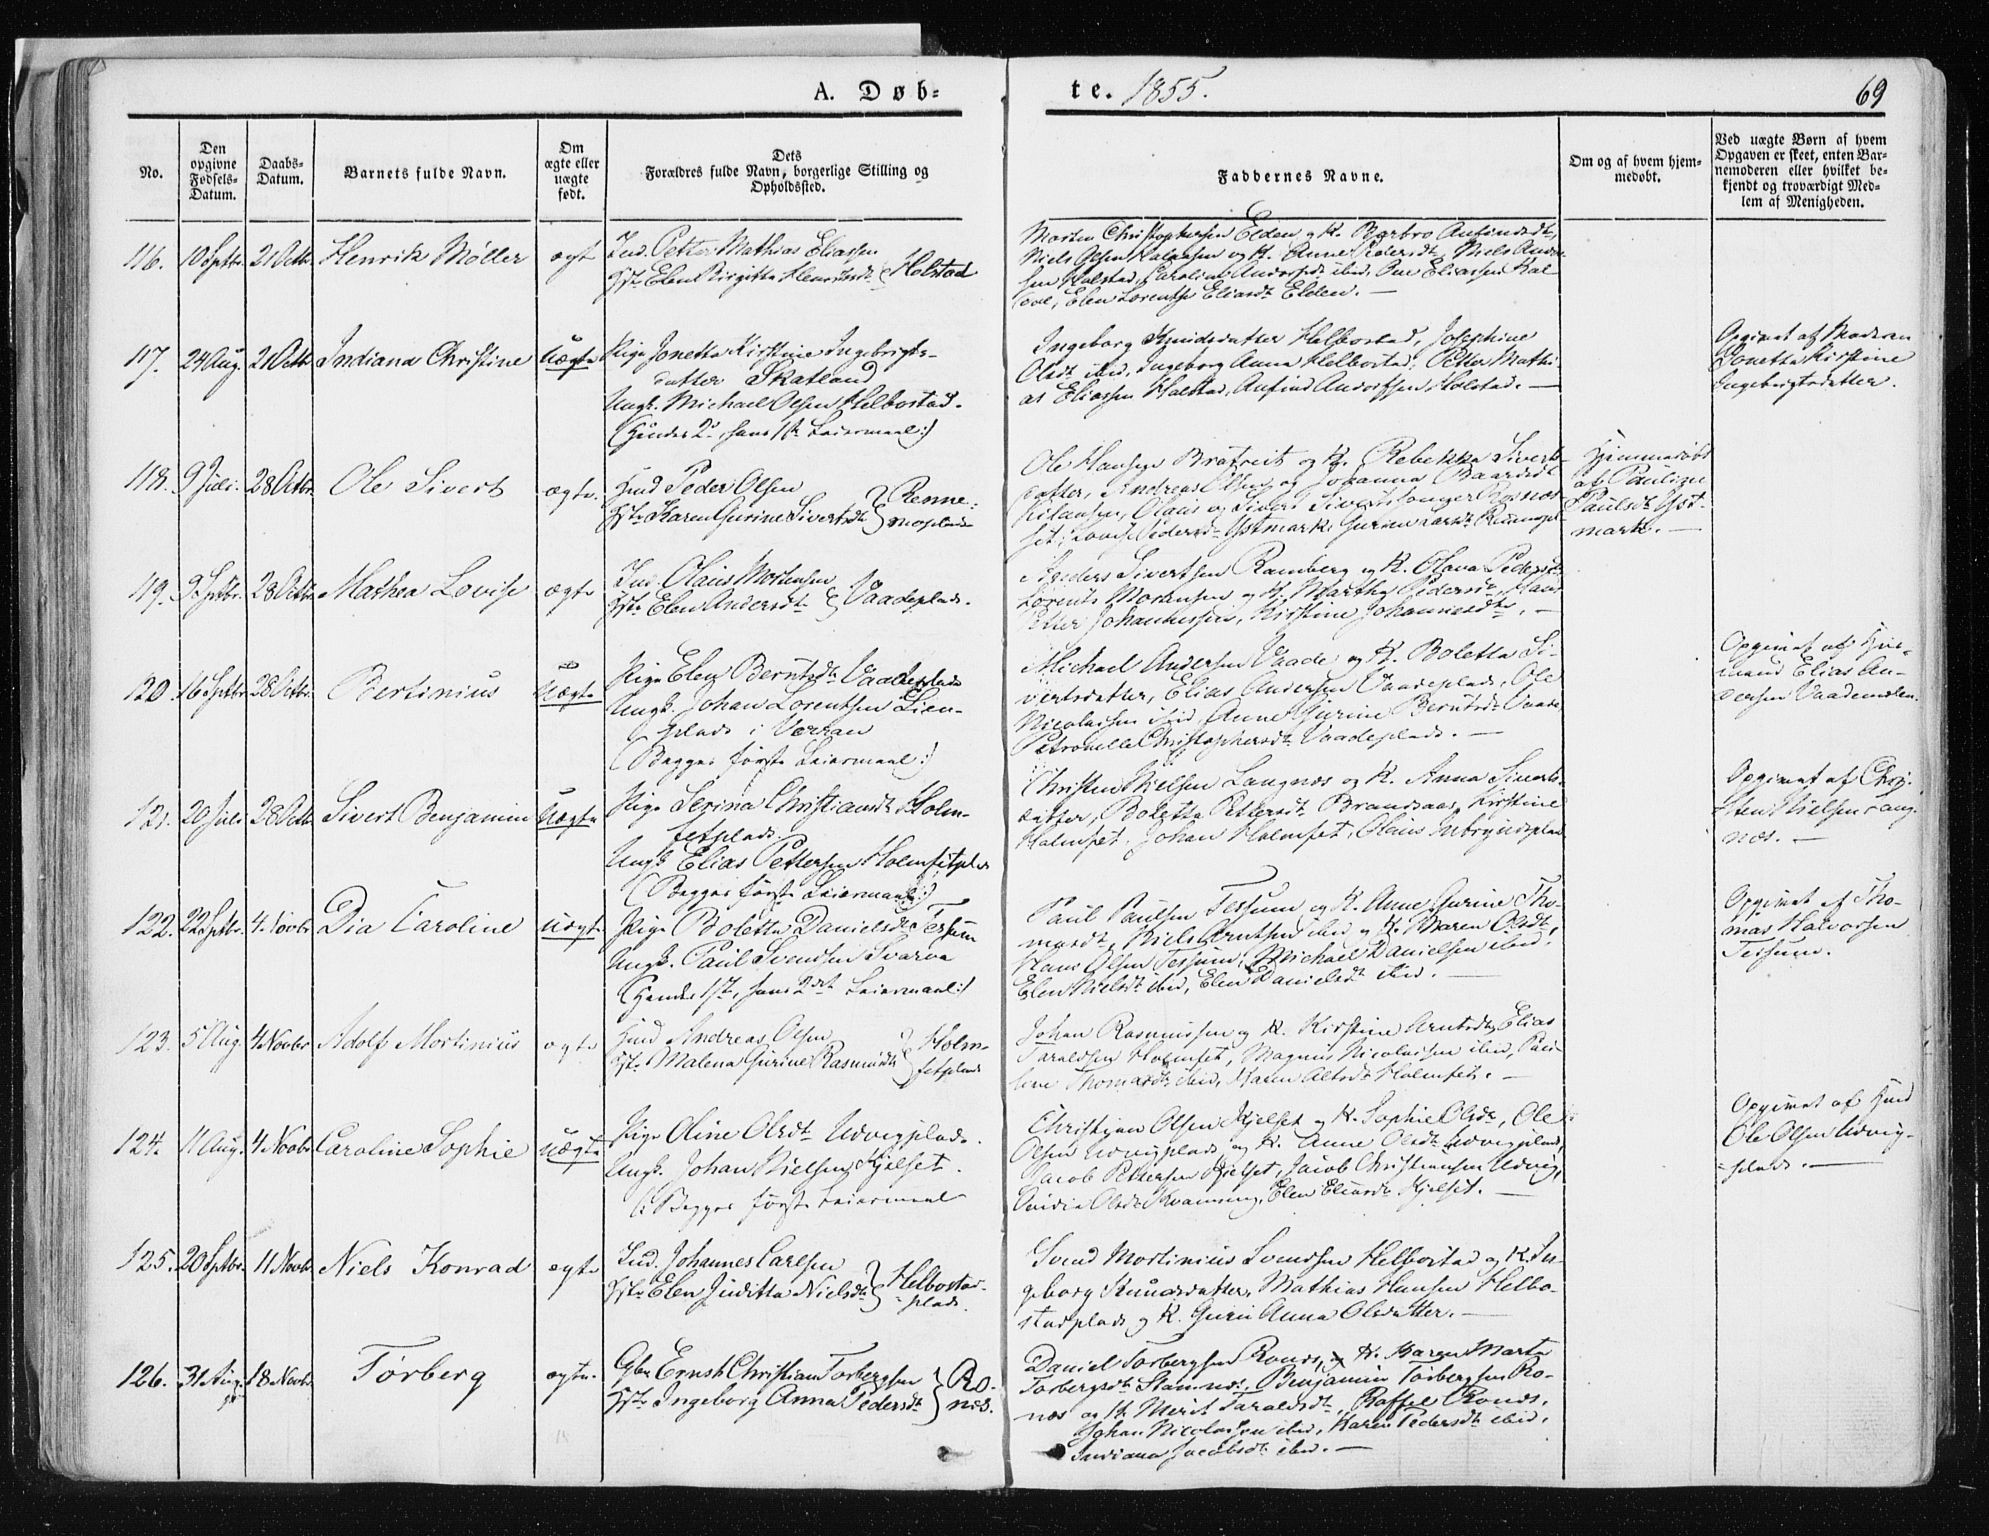 A. Døb-
te. 1855.
69
No.
Den opgivne Fødsels-Datum.
Daabs-Datum.
Barnets fulde Navn.
Om ægte eller uægte født.
Dets Forældres fulde Navn, borgerlige Stilling og Opholdssted.
Faddernes Navne.
Om og af hvem hjem-medøbt.
Ved uægte Børn af hvem Opgaven er skeet, enten Bar-nemoderen eller hvilket be-kjendt og troværdigt Med-lem af Menigheden.
116. 10 Septbr. 21 Octb. Henrik Møller ægt
Ind. Petter Mathias Eliassen
Hst. Elen Birgitta Henriksdt. Holstad
Morten Christophersen Elden og K. Barbro Anfindsdt,
Niels Olsen Kaldahl og K. Anne Pedersdt, Niels Ander-
sen Holstad, Caroline Andersdt ibid, Ole Eliassen
Elen Lorentse Eliasdt Elden. —
117. 24 Aug. 21 Octb. Indiana Christine Uægte
Pige Jonetta Kirstine Ingebrigts-
datter Skatland
Ungk. Michael Olsen Helbostad.
(Hendes 2det, hans 1ste Leiermaal:)
Ingeborg Knudsdatter Helbostad, Josephine
Olsdt ibid, Ingeborg Anna Helbostad, Petter Mathi-
as Eliassen Holstad, Anfind Andersen Holstad. —
Opgivet af Moderen
Jonetta Kirstine
Ingebrigtsdatter.
118. 9 Juli. 28 Octbr. Ole Sivert ægte.
Huusm Peder Olsen
Hst. Karen Gurine Sivertsdt Renne-
moplads
Ole Hansen Bratreit og K. Rebekka Siverts-
datter, Andreas Olsen og Johanna Baardsdt
Olaus og Sivert
Ystmark, Gurine Larsdt
Hjemmedøbt
af Pauline
Paulsdt Yst-
mark. —
119. 9 Septbr. 28 Octbr. Mathea Lovise ægte
Ind. Olaus Mortensen
Hst. Elen Andersdt. Vaadeplads.
Anders Sivertsen Ramberg og K. Olava Pedersdt,
Lorents Mortensen og K. Martha Pedersdt, Hans
Petter Johannessen, Kirstine Johannesdt. —
120. 16 Septbr 28 Octbr. Bertinius Uægte
Pige Elen Berntsdt Vaadeplads
Ungk. Johan Lorentsen Lien-
plads i Værran
(Begges første Leiermaal:)
Michael Andersen Vaade og K. Boletta Si-
vertsdatter, Elias Andersen Vaadeplads, Ole
Nicolaisen ibid, Anne Gurine Berntsdt Vaade
Petronelle Christophersdt Vaadeplads. —
Opgivet af Huus-
mand Elias An-
dersen Vaademoen.
121. 20 Juli 28 Octb. Sivert Benjamin Uægte
Pige Serina Christiansdt Holm-
setplads.
Ungk Elias Pettersen Holmsetplds
(Begges første Leiermaal:)
Christen Nielsen Langnes og K. Anna Siverts-
datter, Boletta Pettersdt Brandsaas, Kirstine
Holmset, Johan Holmset, Olaus
Opgivet af Chri-
sten Nielsen Lang-
næs. —
122. 22 Septbr. 4 Novbr. Dia Caroline uægte
Pige Boletta Danielsdt Tessum
Ungk. Paul Svendsen Svarva
(Hendes 1ste, hans 2det Leiermaal:)
Paul Paulsen Tessum og K. Anne Gurine Tho-
masdt, Niels Arntsen ibid og K. Maren Olsdt,
Hans Olsen Tessum, Michael Danielsen ibid.
Elen Nielsdt ibid, Elen Danielsdt ibid. —
Opgivet af Tho-
mas Halvorsen
Tessum.
123. 5 Aug. 4 Novbr Adolf Mortinius ægte
Huusm Andreas Olsen
Hst. Malena Gurine Rasmusdt Holm-
setplads
Johan Rasmussen og K. Kirstine Arntsdt, Elias
Taraldsen Holmset, Magnus Nicolaisen ibid, Pau-
line Thomasdt ibid, Karen Olsdt Holmset. —
124. 11 Aug. 4 Novbr Caroline Sophie uægte
Pige Oline Olsdt Udvigplads.
Ungk. Johan Nielsen Kjelset.
(: Begges første Leiermaal
Christian Olsen Kjelset og K. Sophie Olsdt, Ole
Olsen Udvigplads og K. Anne Olsdt Udvigplads,
Jacob Pettersen Kjelset, Jacob Christiansen Udvig,
Olsdt Kvamsing, Elen Eliasdt Kjelset. —
Opgivet af Huusm
Ole Olsen Udvig-
plads. —
125. 20 Septbr. 11 Novbr Niels Konrad ægte
Ind. Johannes Carlsen
Hst. Elen Juditta Nielsdt Helbostad-
plads.
Svend Mortinius Svendsen Helbostad og K. In-
geborg Knudsdatter, Mathias Hansen Helbo-
stadplads og K. Guru Anna Olsdatter. —
126. 31 Aug. 18 Novbr Torberg ægte.
Gbr Ernst Christian Torbergsen
Hst. Ingeborg Anna Pedersdt Ro-
næs.
Daniel Torbergsen Ronæs, og K. Karen Marta
Torbergsdt Stamnæs, Benjamin Torbergsen Ro-
næs og K. Merit Taraldsdt, Raffel Ronæs,
Johan Nicolaisen ibid, Karen Pedersdt ibid,
Indiana Jacobsdt ibid. —